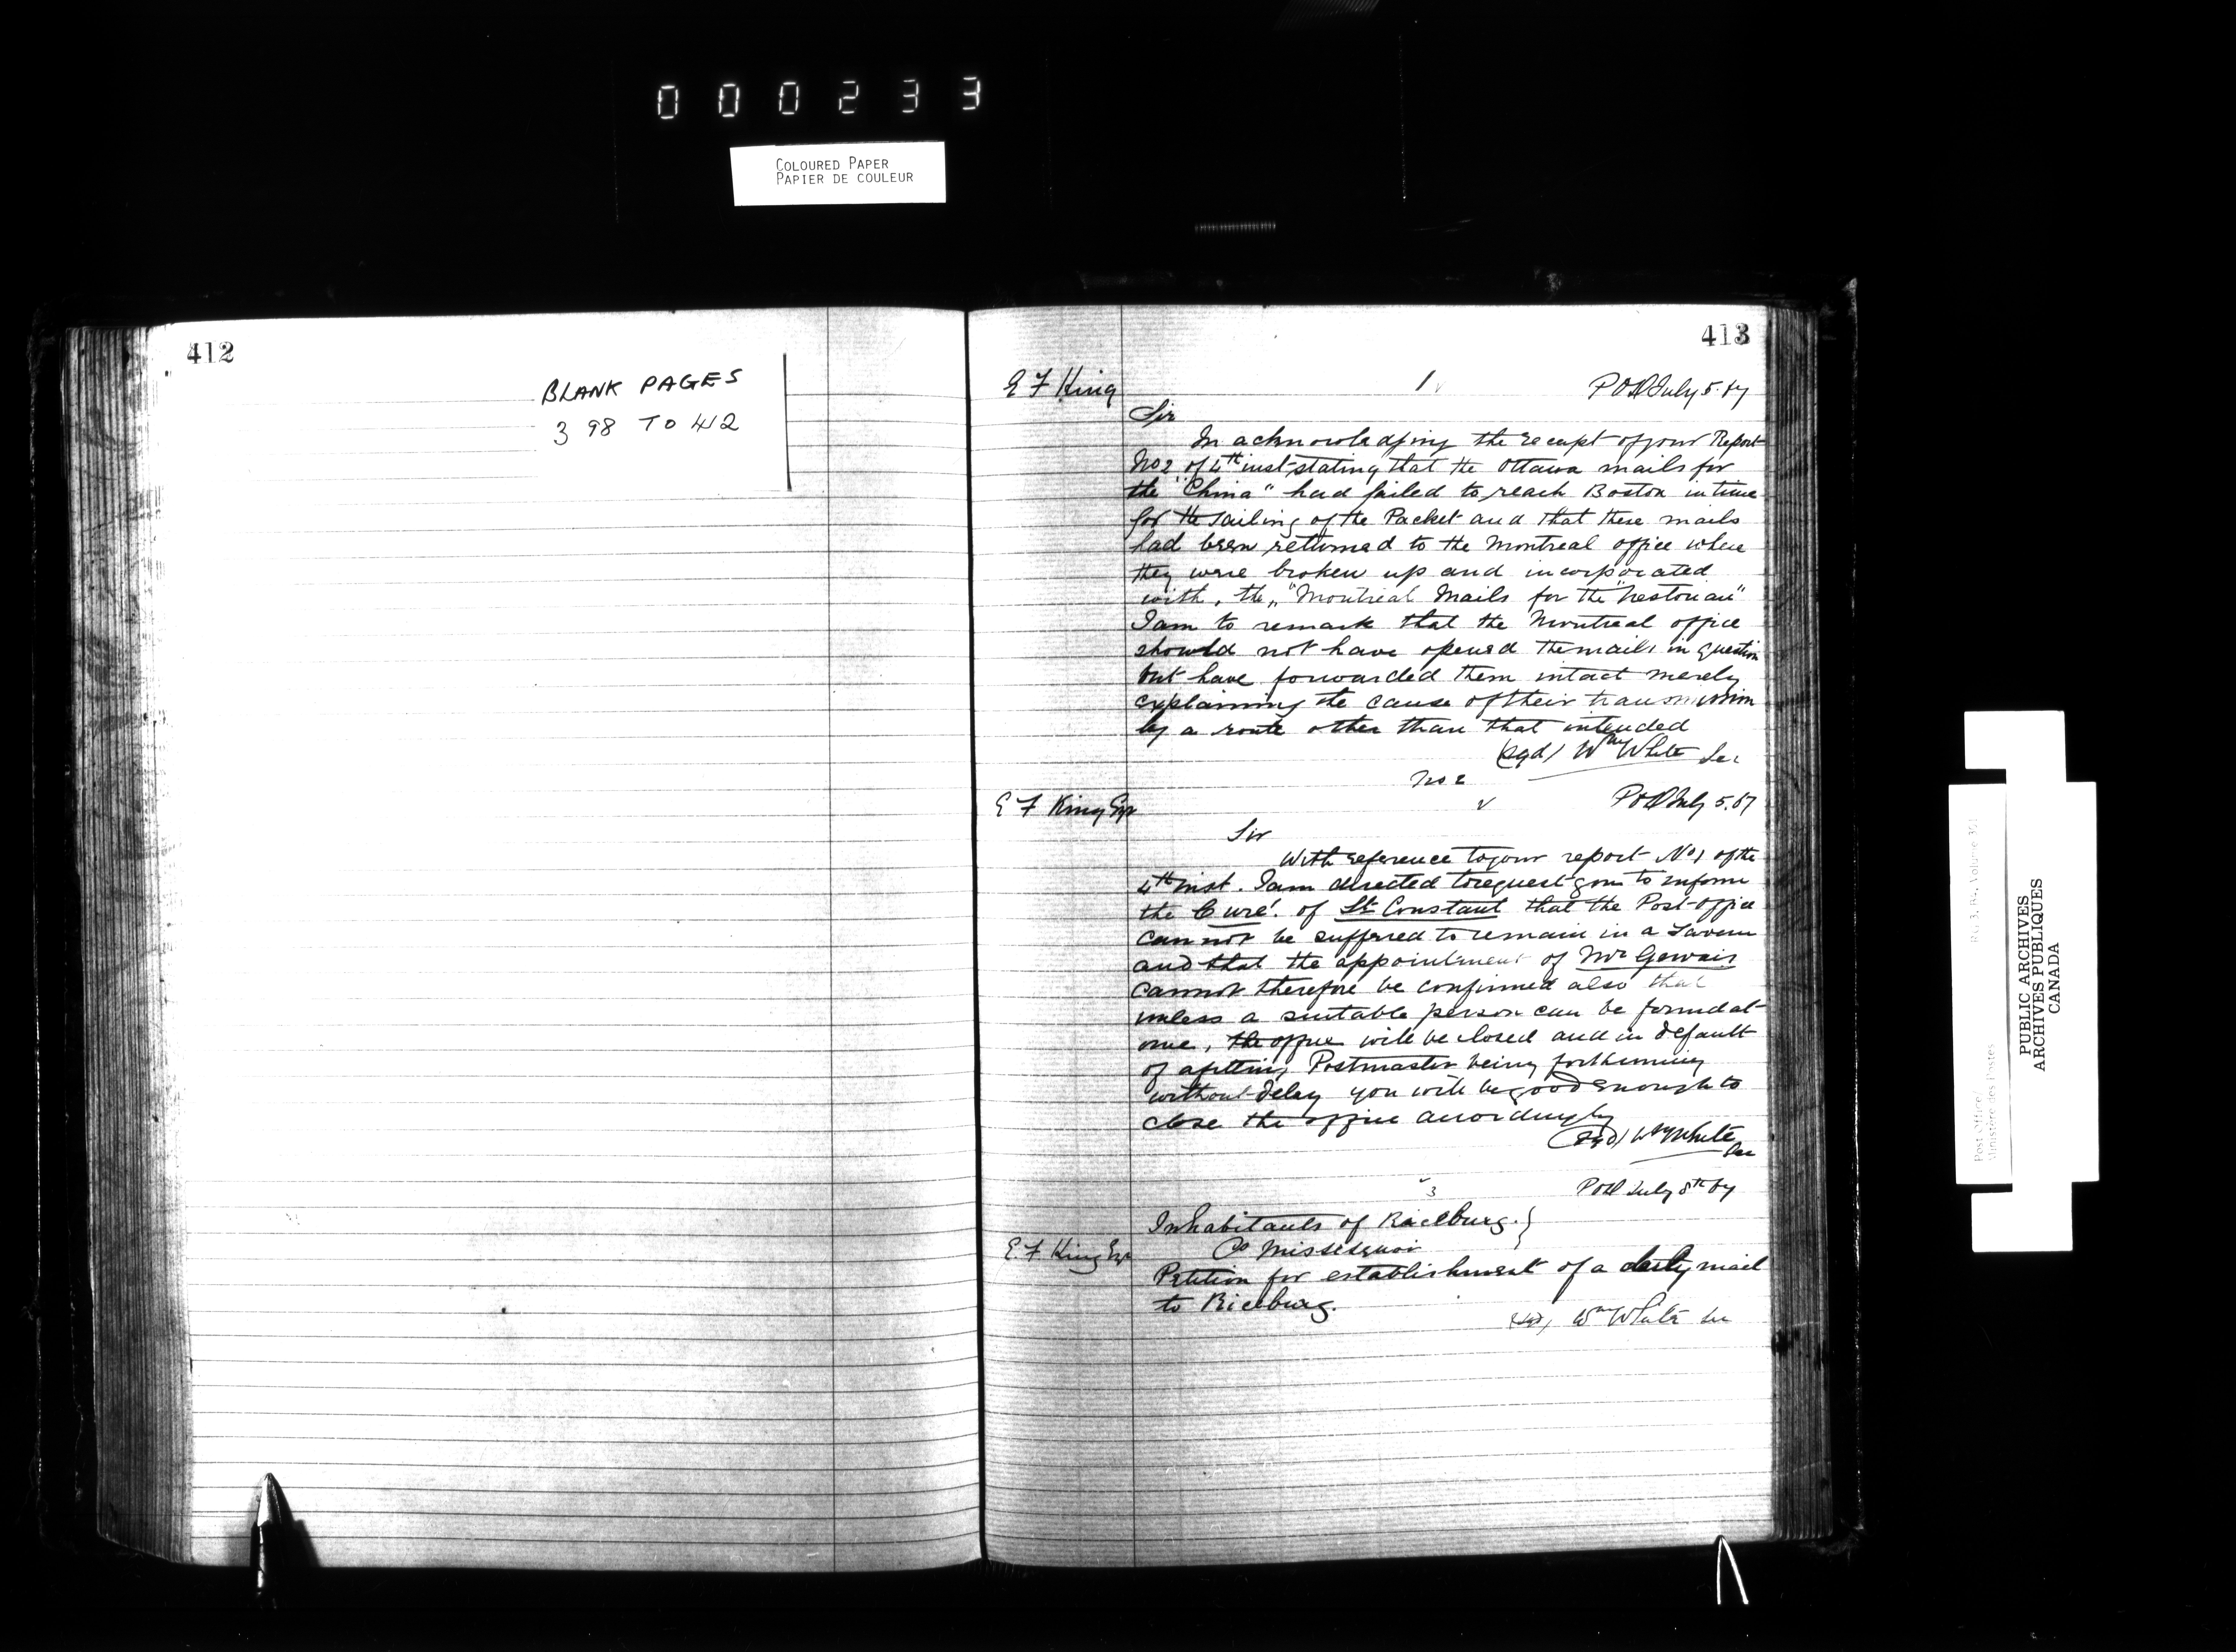 000233
COLOURED PAPER
PAPIER DE COULEUR
412
BLANK PAGES
398 TO 412
413
E F King
1
POD July 5. 67
Sir
In acknowledging the receipt of your Report
No 2 of 4th inst stating that the Ottawa mails for
the "China" had failed to reach Boston in time
for the sailing of the Packet and that these mails
had been returned to the Montreal office where
they were broken up and incorporated
with, the "Montreal Mails for the "Nestorian"
I am to remark that the Montreal office
should not have opened the mails in question
but have forwarded them intact merely
explaining the cause of their transmission
by a route other than that intended
(sgd) Wm White Sec
No 2
E F King Esqr
POD July 5. 67
Sir
With reference to your report No 1 of the
4th inst. I am directed to request you to inform
the Curé. of St Constant that the Post-Office
cannot be suffered to remain in a Tavern
and that the appointment of Mr Gervais
cannot therefore be confirmed also that
unless a suitable person can be found at
once, the office will be closed and in default
of a fitting Postmaster being forthcoming
without delay you will be good enough to
close the office accordingly
(sgd) Wm White
Sec
3
POD July 8th 67
Inhabitants of Riceburg. }
E. F. King Esqr
Co Missisquoi
Petition for establishment of a daily mail
to Riceburg.
(sgd) Wm White Sec
Post Office
Ministère des Postes
RG 3, B 4, Volume 321
PUBLIC ARCHIVES
ARCHIVES PUBLIQUES
CANADA